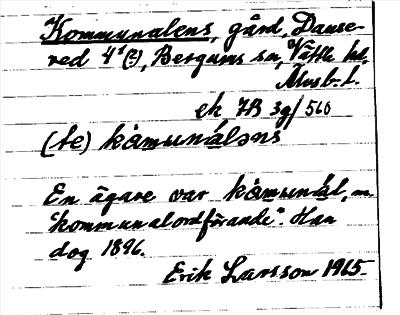 Kommunalens, gård, Danse-
red 4¹(?), Bergums sn, Vättle hd,
Älvsb. l.
ek, JB 3g/560
(te) kåmunáləns
En ägare var kåmunál, m.
"kommunalordförande". Han
dog 1896.
Erik Larsson 1965.